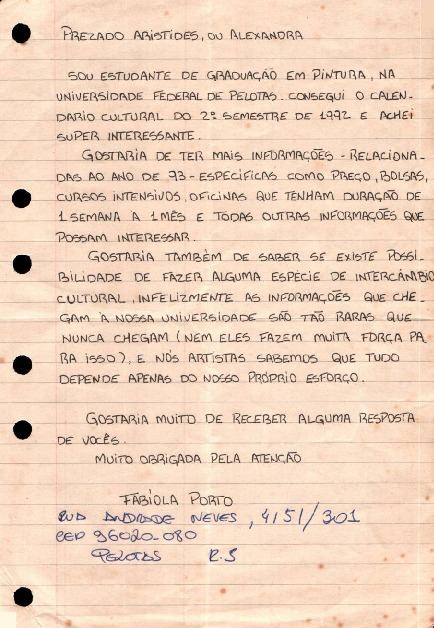 PREZADO ARISTIDES, OU ALEXANDRA
SOU ESTUDANTE DE GRADUAÇÃO EM PINTURA, NA
UNIVERSIDADE FEDERAL DE PELOTAS. CONSEGUI O CALEN-
DARIO CULTURAL DO 2º SEMESTRE DE 1992 E ACHEI
SUPER INTERESSANTE.
GOSTARIA DE TER MAIS INFORMAÇÕES - RELACIONA-
DAS AO ANO DE 93 - ESPECÍFICAS COMO PREÇO, BOLSAS,
CURSOS INTENSIVOS, OFICINAS QUE TENHAM DURAÇÃO DE
1 SEMANA A 1 MÊS E TODAS OUTRAS INFORMAÇÕES QUE
POSSAM INTERESSAR.
GOSTARIA TAMBÉM DE SABER SE EXISTE POSSI-
BILIDADE DE FAZER ALGUMA ESPÉCIE DE INTERCÂMBIO
CULTURAL, INFELIZMENTE AS INFORMAÇÕES QUE CHE-
GAM À NOSSA UNIVERSIDADE SÃO TÃO RARAS QUE
NUNCA CHEGAM (NEM ELES FAZEM MUITA FORÇA PA
RA ISSO), E NÓS ARTISTAS SABEMOS QUE TUDO
DEPENDE APENAS DO NOSSO PRÓPRIO ESFORÇO.
GOSTARIA MUITO DE RECEBER ALGUMA RESPOSTA
DE VOCÊS.
MUITO OBRIGADA PELA ATENÇÃO
FABÍOLA PORTO
RUA ANDRADE NEVES, 4151/301
CEP 96020-080
PELOTAS R.S